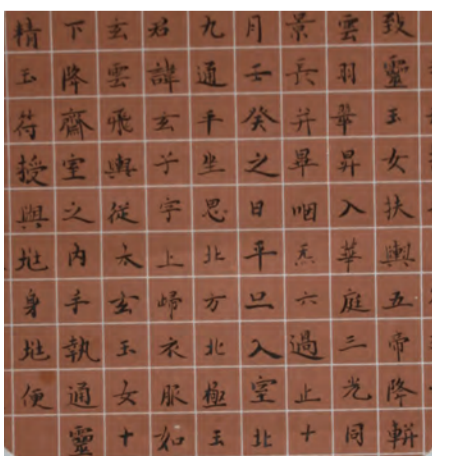 致靈玉女扶輿五帝降軿
雲羽翠昇入華庭三光同
景長并畢咽炁六過止十
月壬癸之日平旦入室北
九通平坐思北方北極玉
君諱玄子字上歸衣服如
玄雲飛輿從太玄玉女十
下降齋室之內手執通靈
精玉符授與兆身兆便